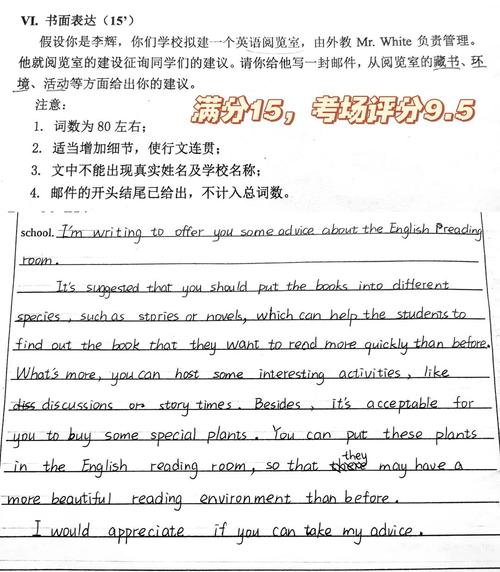 VI. 书面表达（15'）
假设你是李辉，你们学校拟建一个英语阅览室，由外教 Mr. White 负责管理。
他就阅览室的建设征询同学们的建议。请你给他写一封邮件，从阅览室的藏书、环
境、活动等方面给出你的建议。
注意：
满分15，考场评分9.5
1. 词数为 80 左右；
2. 适当增加细节，使行文连贯；
3. 文中不能出现真实姓名及学校名称；
4. 邮件的开头结尾已给出，不计入总词数。
school. I'm writing to offer you some advice about the English reading
room.
It's suggested that you should put the books into different
species, such as stories or novels, which can help the students to
find out the book that they want to read more quickly than before.
What's more, you can host some interesting activities, like
discussions or story times. Besides, it's acceptable for
you to buy some special plants. You can put these plants
in the English reading room, so that they may have a
more beautiful reading environment than before.
I would appreciate if you can take my advice.